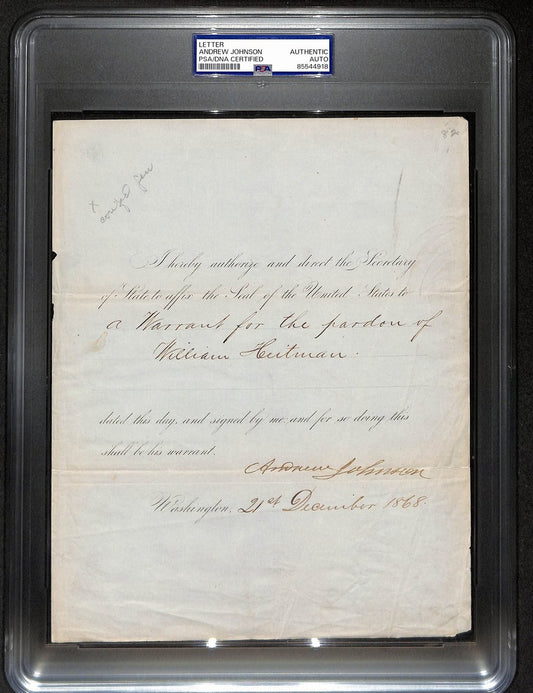 LETTER
ANDREW JOHNSON
PSA/DNA CERTIFIED
AUTHENTIC
AUTO
85544918
PSA
82
x
I hereby authorize and direct the Secretary
of State to affix the Seal of the United States to
a Warrant for the pardon of
William Heitman.
dated this day, and signed by me and for so doing this
shall be his warrant.
Andrew Johnson
Washington, 21st December 1868.